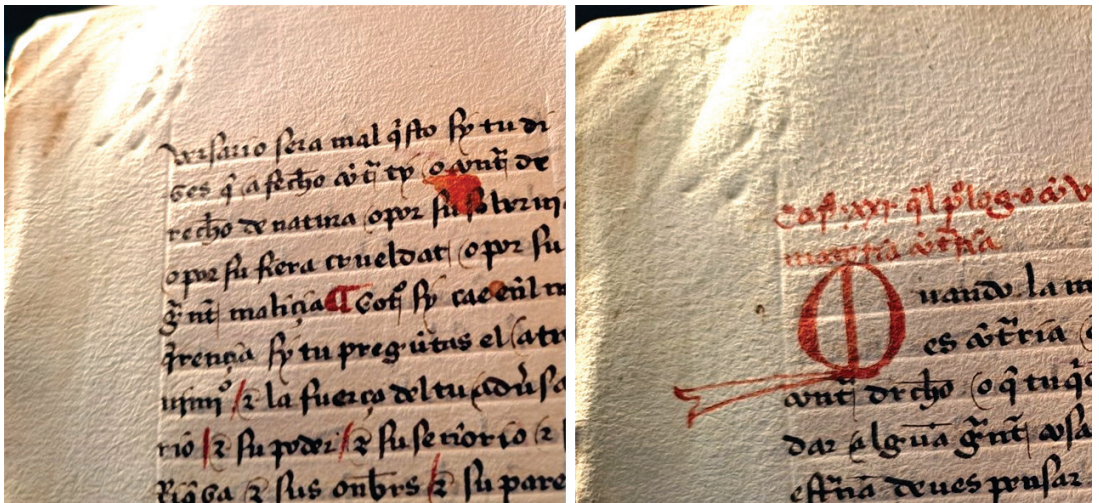 uersario sera mal q̄sto sy tu di
ges q̄ a fecho cōt̄ ty o cont̄ de
recho de natura o por su soberui
o por su fiera crueldat o por su
gr̄nt maliçia ¶ Cotꝭ sy cae en l
q̄rençia sy tu pregūtas el atr
uimiº / ⁊ la fuerça del tu aduīsa
rio / ⁊ su poder / ⁊ su señorio ⁊
Riq̄za ⁊ sus onbrs ⁊ su pare
Capº .xxj. q̄l pºlogo
materia cōt̄ria
Quando la m
es cōt̄ria
cont̄ drecho o q̄ tu q̄
dar alguā gr̄nt cosa
estr̄na deues pensar